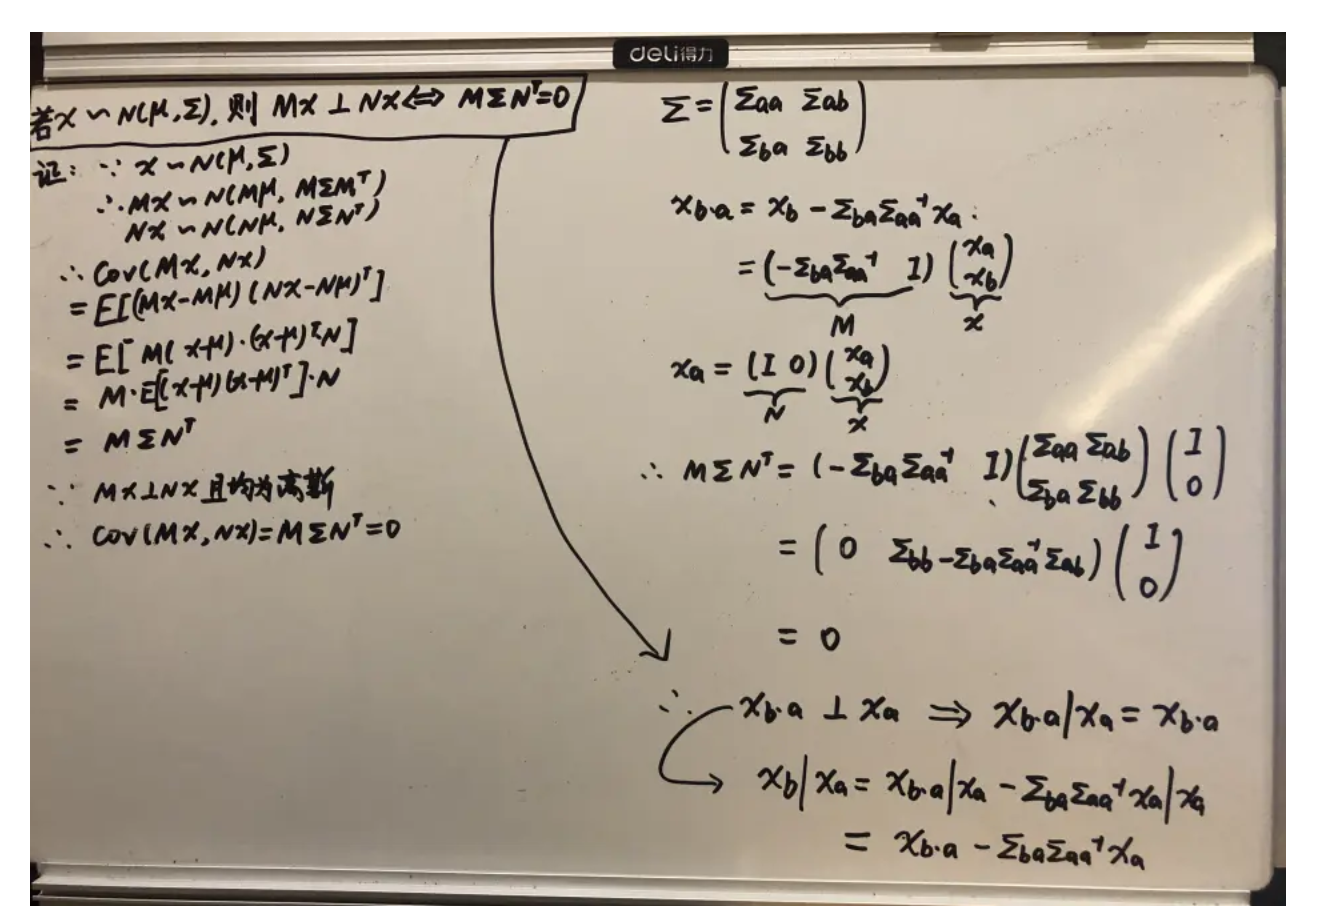 deli得力
若x ∼ N(μ,Σ), 则 Mx ⊥ Nx ⟺ MΣNᵀ=0
证: ∵ x ∼ N(μ,Σ)
∴ Mx ∼ N(Mμ, MΣMᵀ)
Nx ∼ N(Nμ, NΣNᵀ)
∴ Cov(Mx, Nx)
= E[(Mx-Mμ)(Nx-Nμ)ᵀ]
= E[M(x-μ)·(x-μ)ᵀN]
= M·E[(x-μ)(x-μ)ᵀ]·N
= MΣNᵀ
∵ Mx⊥Nx 且均为高斯
∴ Cov(Mx, Nx)=MΣNᵀ=0
Σ = (Σaa Σab
Σba Σbb)
x_b·a = x_b - ΣbaΣaa⁻¹x_a :
= (-ΣbaΣaa⁻¹ I) (x_a
x_b)
M x
x_a = (I 0) (x_a
x_b)
N x
∴ MΣNᵀ = (-ΣbaΣaa⁻¹ I) (Σaa Σab (I
Σba Σbb) 0)
= (0 Σbb-ΣbaΣaa⁻¹Σab) (I
0)
= 0
∴ x_b·a ⊥ x_a ⟹ x_b·a|x_a = x_b·a
x_b|x_a = x_b·a|x_a - ΣbaΣaa⁻¹x_a|x_a
= x_b·a - ΣbaΣaa⁻¹x_a